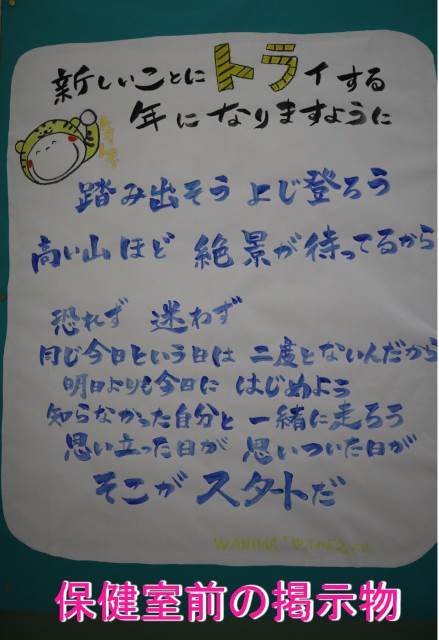 新しいことにトライする
年になりますように
踏み出そう よじ登ろう
高い山ほど 絶景が待ってるから
恐れず 迷わず
同じ今日という日は 二度とないんだから
明日よりも今日に はじめよう
知らなかった自分と 一緒に走ろう
思い立った日が 思いついた日が
そこが スタートだ
WANIMA
保健室前の掲示物